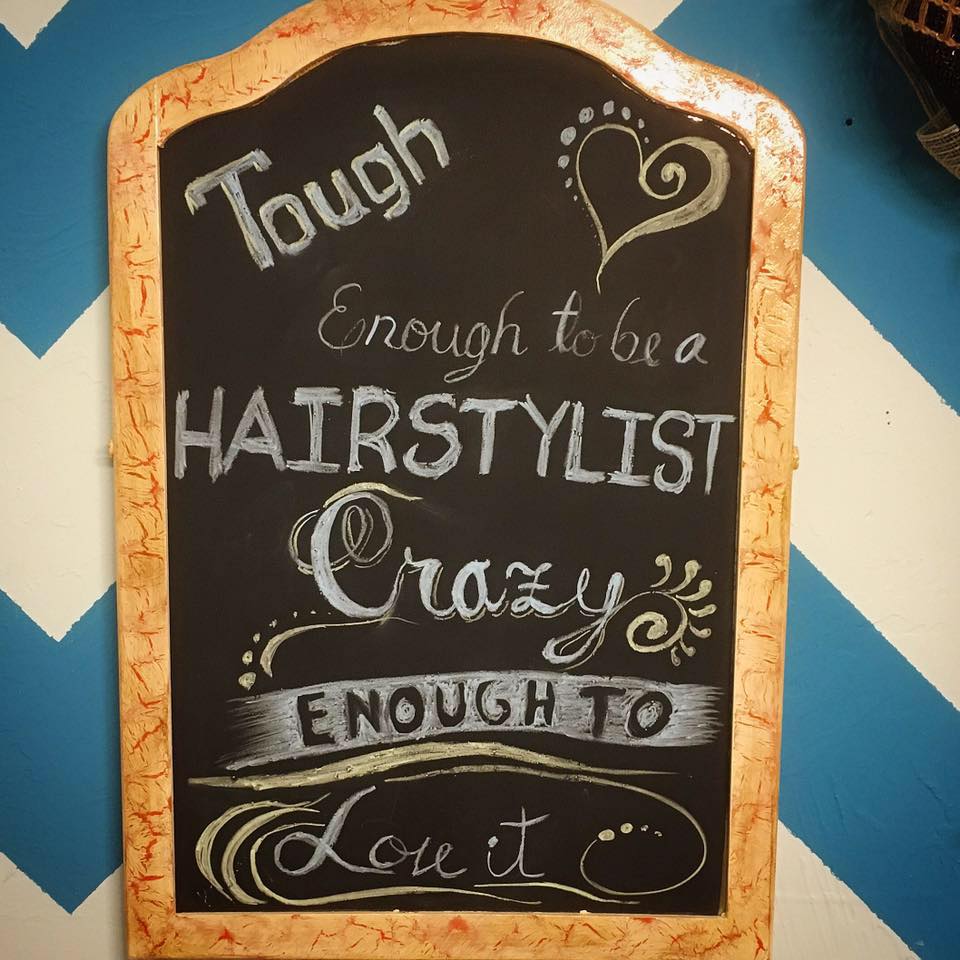 Tough
Enough to be a
HAIRSTYLIST
Crazy
ENOUGH TO
Love it